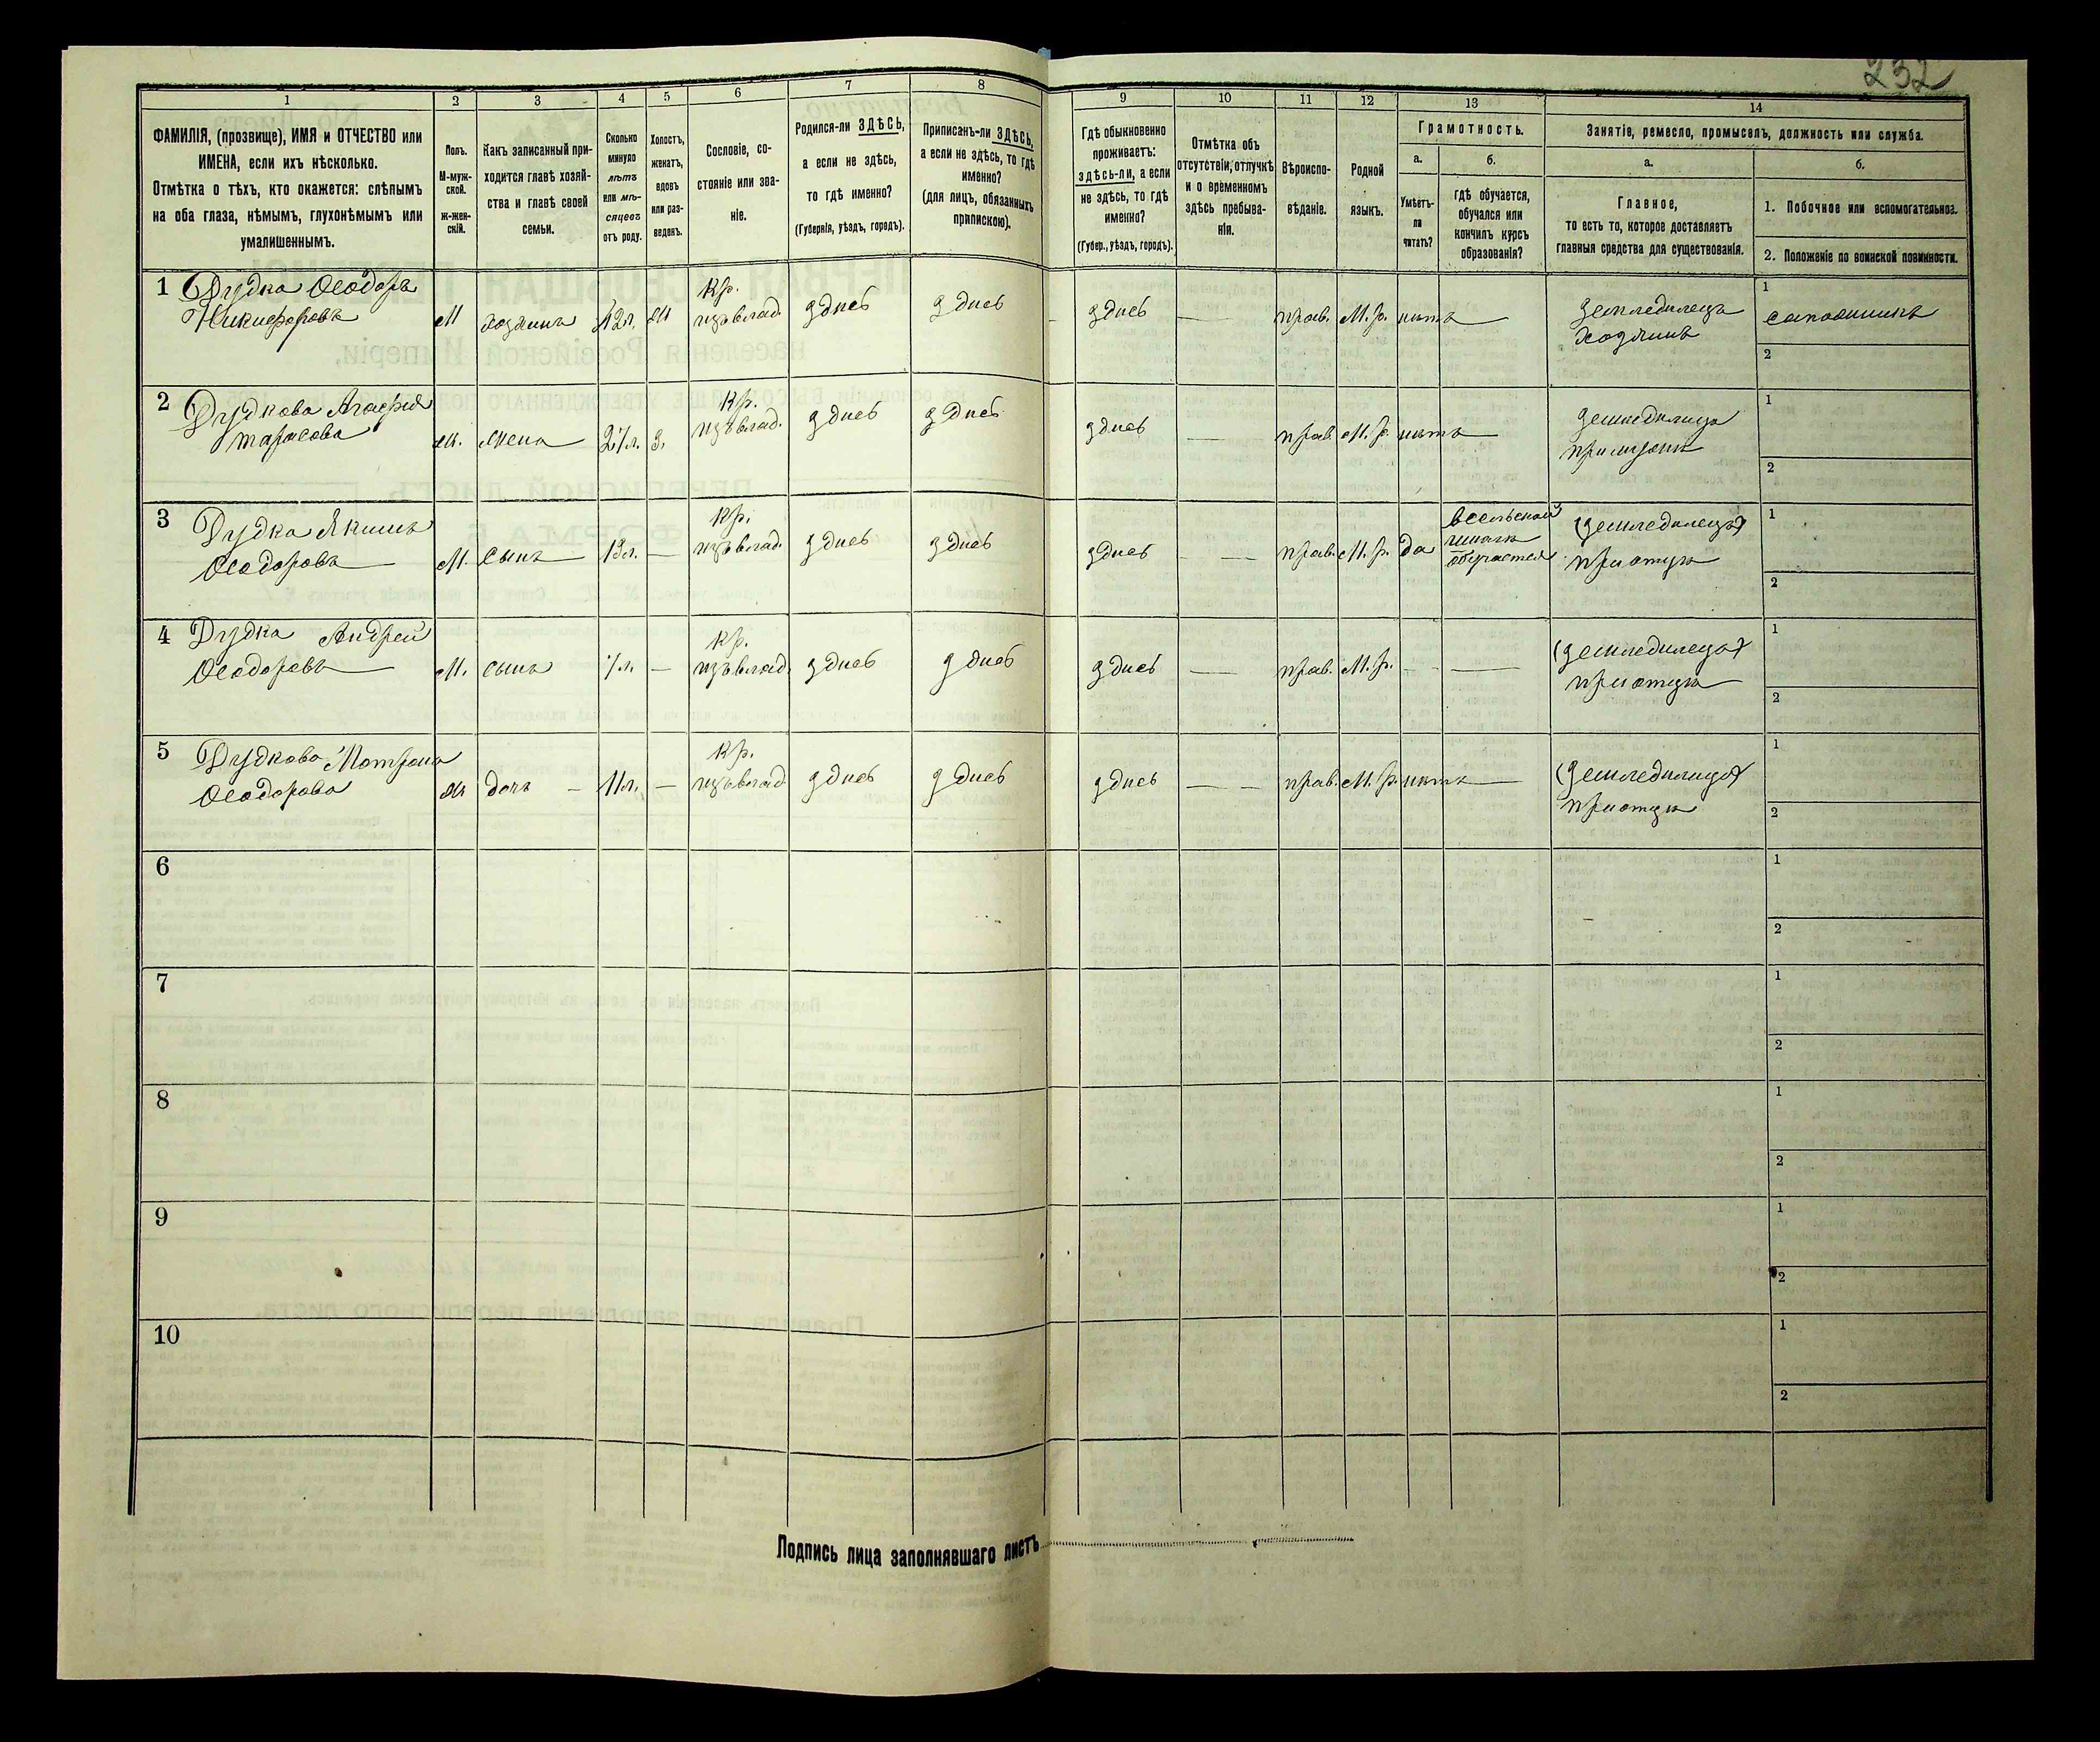 232
1 2 3 4 5 6 7 8 9 10 11 12 13 14
ФАМИЛІЯ, (прозвище), ИМЯ и ОТЧЕСТВО или
ИМЕНА, если ихъ нѣсколько.
Отмѣтка о тѣхъ, кто окажется: слѣпымъ
на оба глаза, нѣмымъ, глухонѣмымъ или
умалишеннымъ.
Полъ.
М-муж-
ской.
ж-жен-
скій.
Какъ записанный при-
ходится главѣ хозяй-
ства и главѣ своей
семьи.
Сколько
минуло
лѣтъ
или мѣ-
сяцевъ
отъ роду.
Холостъ,
женатъ,
вдовъ
или раз-
веденъ.
Сословіе, со-
стояніе или зва-
ніе.
Родился-ли ЗДѢСЬ,
а если не здѣсь,
то гдѣ именно?
(Губернія, уѣздъ, городъ).
Приписанъ-ли ЗДѢСЬ,
а если не здѣсь, то гдѣ
именно?
(для лицъ, обязанныхъ
припискою).
Гдѣ обыкновенно
проживаетъ:
здѣсь-ли, а если
не здѣсь, то гдѣ
именно?
(Губер., уѣздъ, городъ).
Отмѣтка объ
отсутствіи, отлучкѣ
и о временномъ
здѣсь пребыва-
ніи.
Вѣроиспо-
вѣданіе.
Родной
языкъ.
Грамотность.
а.
Умѣетъ-
ли
читать?
б.
гдѣ обучается,
обучался или
кончилъ курсъ
образованія?
Занятіе, ремесло, промыселъ, должность или служба.
а.
Главное,
то есть то, которое доставляетъ
главныя средства для существованія.
б.
1. Побочное или вспомогательное.
2. Положеніе по воинской повинности.
1 Дудка Ѳеодоръ
Никифоровъ
М хозяинъ 42л. ж кр.
изъ влад. здѣсь здѣсь здѣсь — прав. М.р. нѣтъ —
земледѣлецъ
хозяинъ
1 сапожникъ
2
2 Дудкова Агафія
Тарасова
ж. жена 27л. з. кр.
изъ влад. здѣсь здѣсь здѣсь — прав. М.р. нѣтъ —
земледѣлица
при мужѣ
1
2
3 Дудка Якимъ
Ѳеодоровъ
М. сынъ 13л. — кр.
изъ влад. здѣсь здѣсь здѣсь — прав. М.р. да
в сельской
школѣ
обучается
(земледѣлецъ)
при отцѣ
1
2
4 Дудка Андрей
Ѳеодоровъ
М. сынъ 7л. — кр.
изъ влад. здѣсь здѣсь здѣсь — прав. М.р. — —
(земледѣлецъ)
при отцѣ
1
2
5 Дудкова Мотрона
Ѳеодорова
ж дочь — 11л. — кр.
изъ влад здѣсь здѣсь здѣсь — — прав. М.р. нѣтъ —
(земледѣлица)
при отцѣ
1
2
6
1
2
7
1
2
8
1
2
9
1
2
10
1
2
Подпись лица заполнявшаго листъ